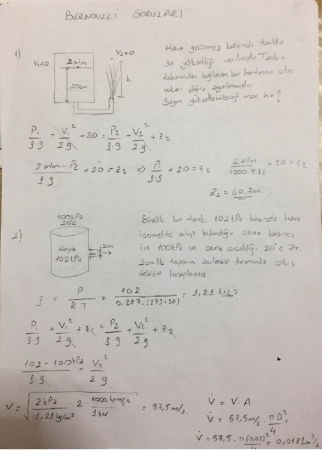 BERNOULLI SORULARI
1)
V1=0
V2=0
2 atm
20m
h
Hava geçirmez basınçlı tankta
su yüksekliği verilmiştir. Tankın
tabanından bağlanan bir hortumun ucu
yukarı doğru
Suyun yükselebileceği max h=?
P1/ρg + V1²/2g + 20 = P2/ρg + V2²/2g + z2
2 atm - P2/ρg + 20 = z2 ⇒ P1/ρg + 20 = z2
2 atm/1000.9.81 + 20 = z2
z2 = 40,7m
2)
100 kPa
20°C
Hava
102 kPa
2cm
Büyük bir tank 102 kPa basınçta hava
içermekte olup bulunduğu
ise 100 kPa ve çevre sıcaklığı 20°C dir.
2 cm'lik tapanın açılması durumunda
debiyi hesaplayınız
ρ = P/RT = 102/0.287.(273+20) = 1,21 kg/m³
P1/ρg + V1²/2g + z1 = P2/ρg + V2²/2g + z2
102-100 kPa/ρg = V2²/2g
V = √(2 kPa/1,21 kg/m³ . 2 1000 kg m/s²/1 kN) = 57,5 m/s
V̇ = V.A
V̇ = 57,5 m/s . πD²/4
V̇ = 57,5 . π(0.02)²/4 = 0,0181 m³/s